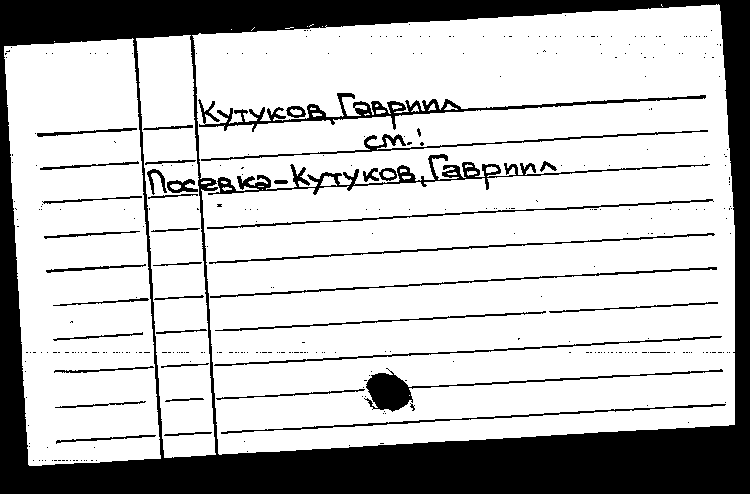 Кутуков, Гавриил
см.:
Посевка-Кутуков, Гавриил